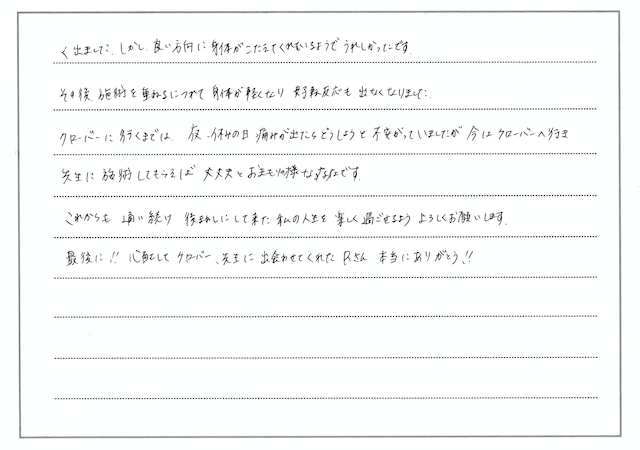 く出ました。しかし、良い方向に身体がこたえてくれているようでうれしかったです。
その後、施術を重ねるにつれて身体が軽くなり 好転反応も出なくなりました。
クローバーに行くまでは、夜、休みの日 痛みが出たらどうしようと不安がっていましたが 今はクローバーへ行き
先生に施術してもらえば 大丈夫とお守りの様なです。
これからも 通い続け 後まわしにして来た私の人生を 楽しく過ごせるよう よろしくお願いします。
最後に!! 心配して クローバー、先生に出会わせてくれた Rさん 本当にありがとう!!